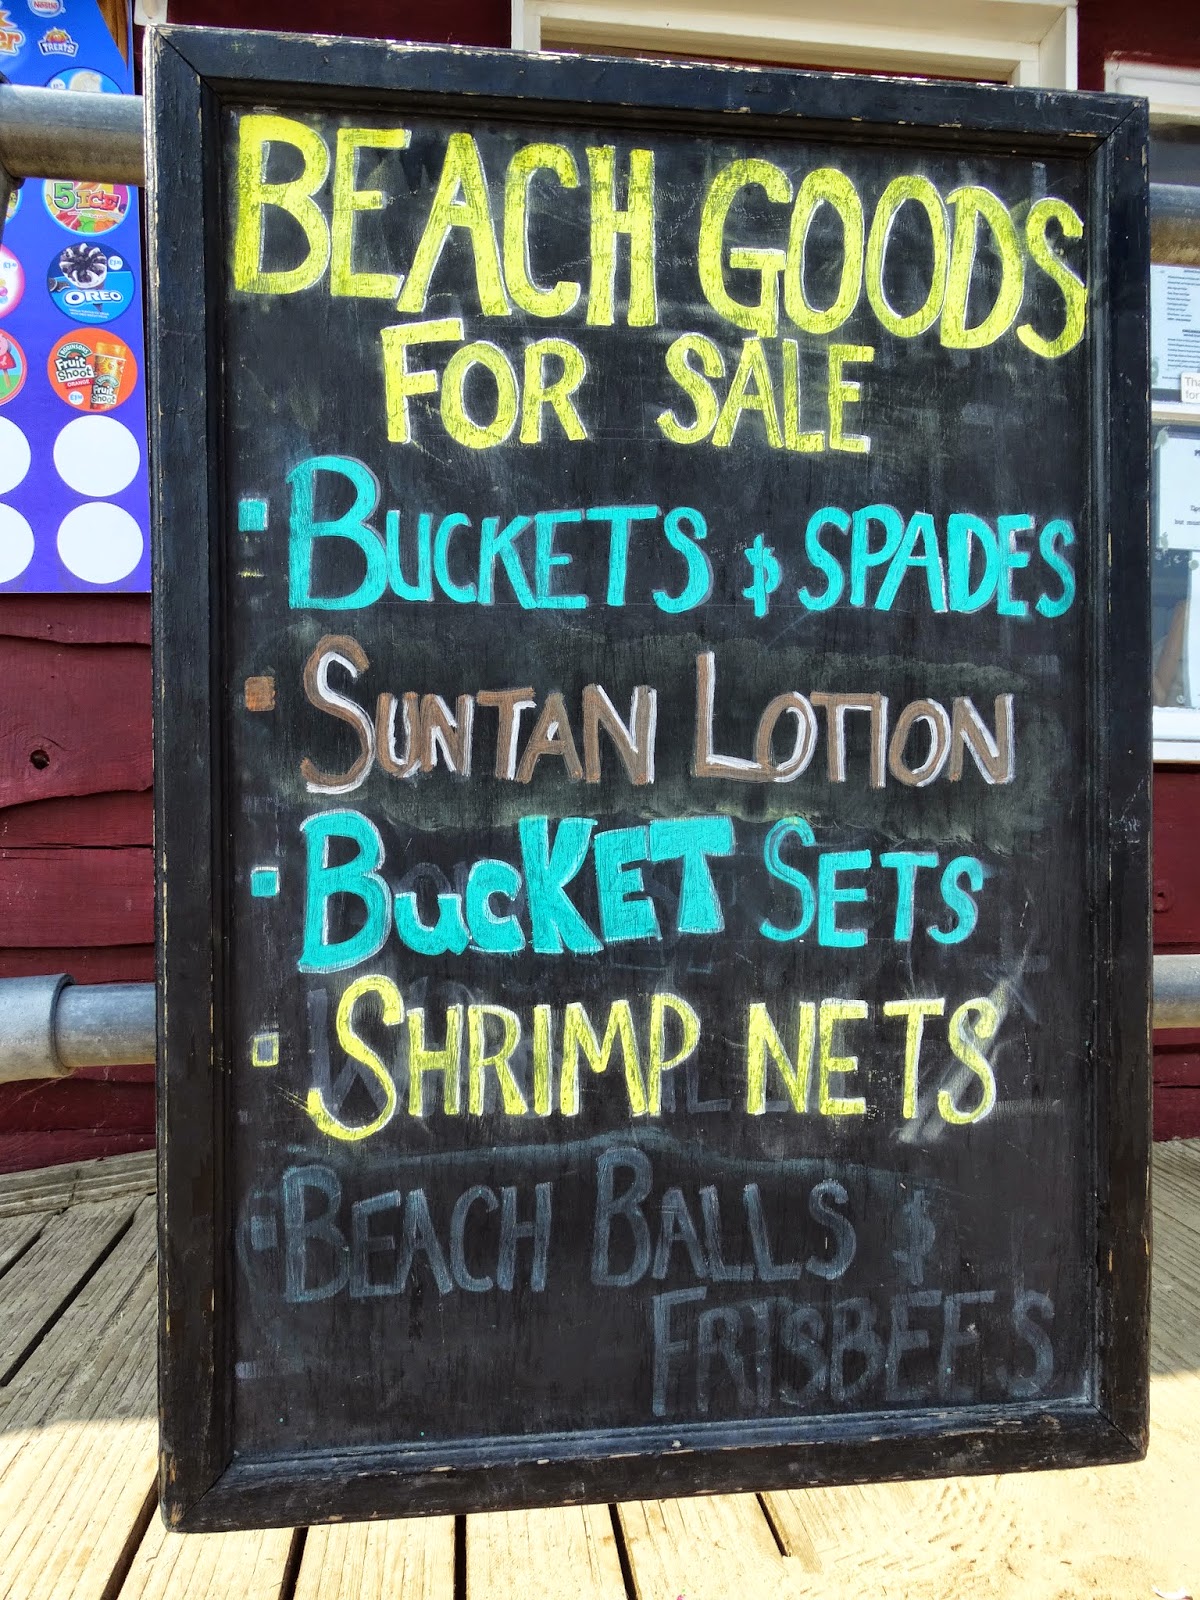 BEACH GOODS
FOR SALE
▪ BUCKETS & SPADES
▪ SUNTAN LOTION
▪ BucKET SETS
▫ SHRIMP NETS
▪ BEACH BALLS &
FRISBEES
Nestlé
TREATS
5 ICE
OREO
ROBINSONS
Fruit
Shoot
ORANGE
Fruit
Shoot